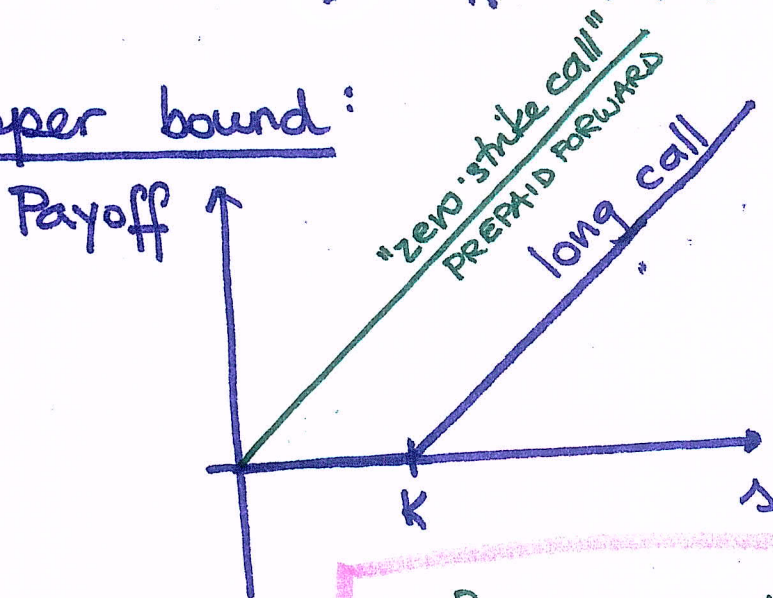 upper bound:
Payoff
"zero strike call"
PREPAID FORWARD
long call
K
s